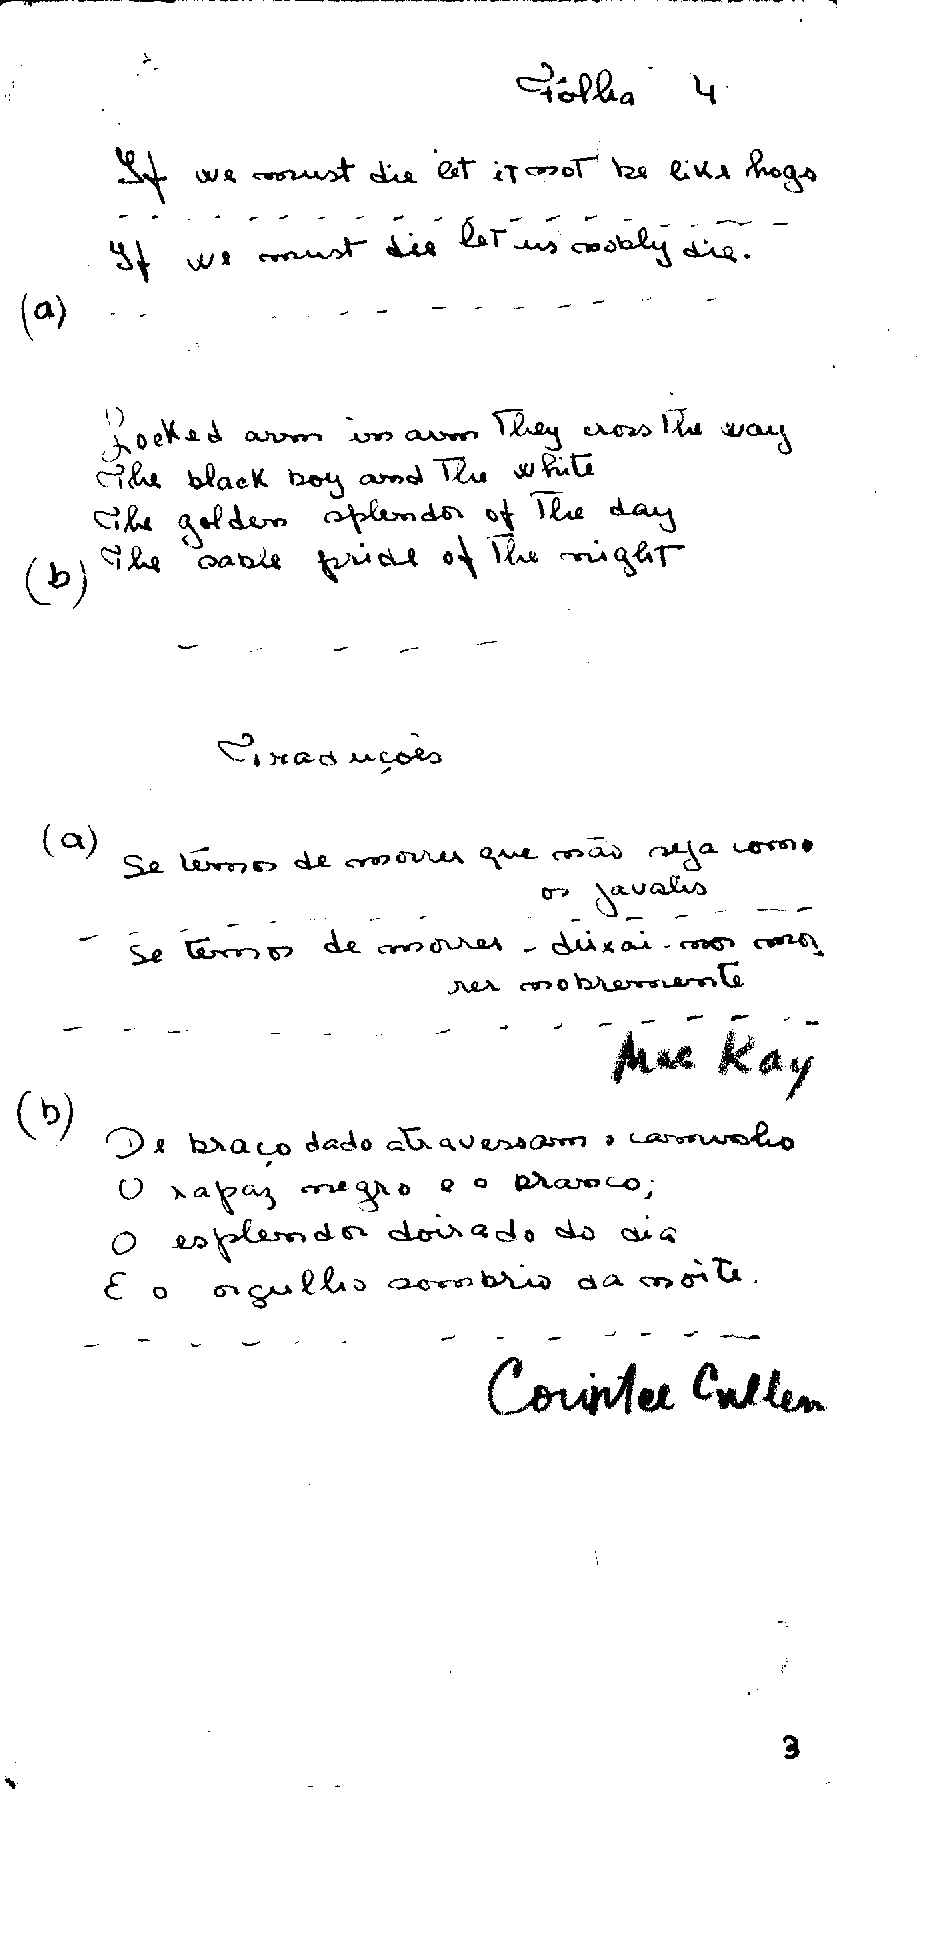 Fôlha 4
If we must die let it not be like hogs
If we must die let us nobly die.
(a)
Locked arm in arm they cross the way
The black boy and the white
The golden splendor of the day
The sable pride of the night
(b)
Traduções
(a)
Se têmos de morrer que não seja como
os javalis
Se têmos de morrer - deixai-nos mor-
rer nobremente
Mac Kay
(b)
De braço dado atravessam o caminho
O rapaz negro e o branco;
O esplendor doirado do dia
E o orgulho sombrio da noite.
Countee Cullen
3